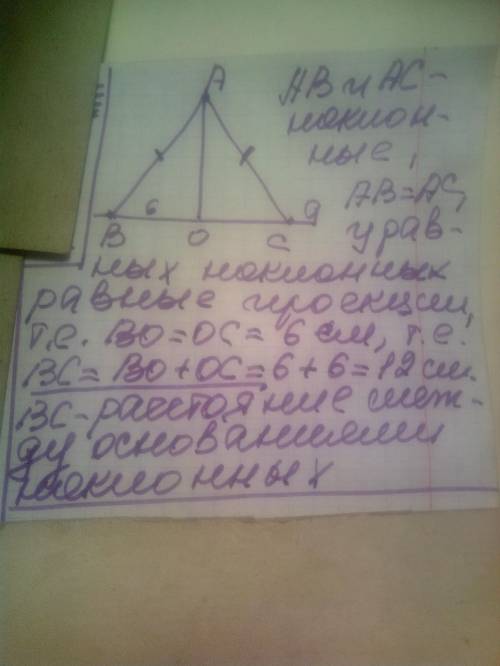 A
AB и AC-
наклон-
ные,
AB=AC,
у рав-
6
a
B O C
ных наклонных
равные проекции,
т.е. BO=OC= 6 см, т.е.
BC= BO+OC=6+6=12 см.
BC-расстояние меж-
ду основаниями
наклонных